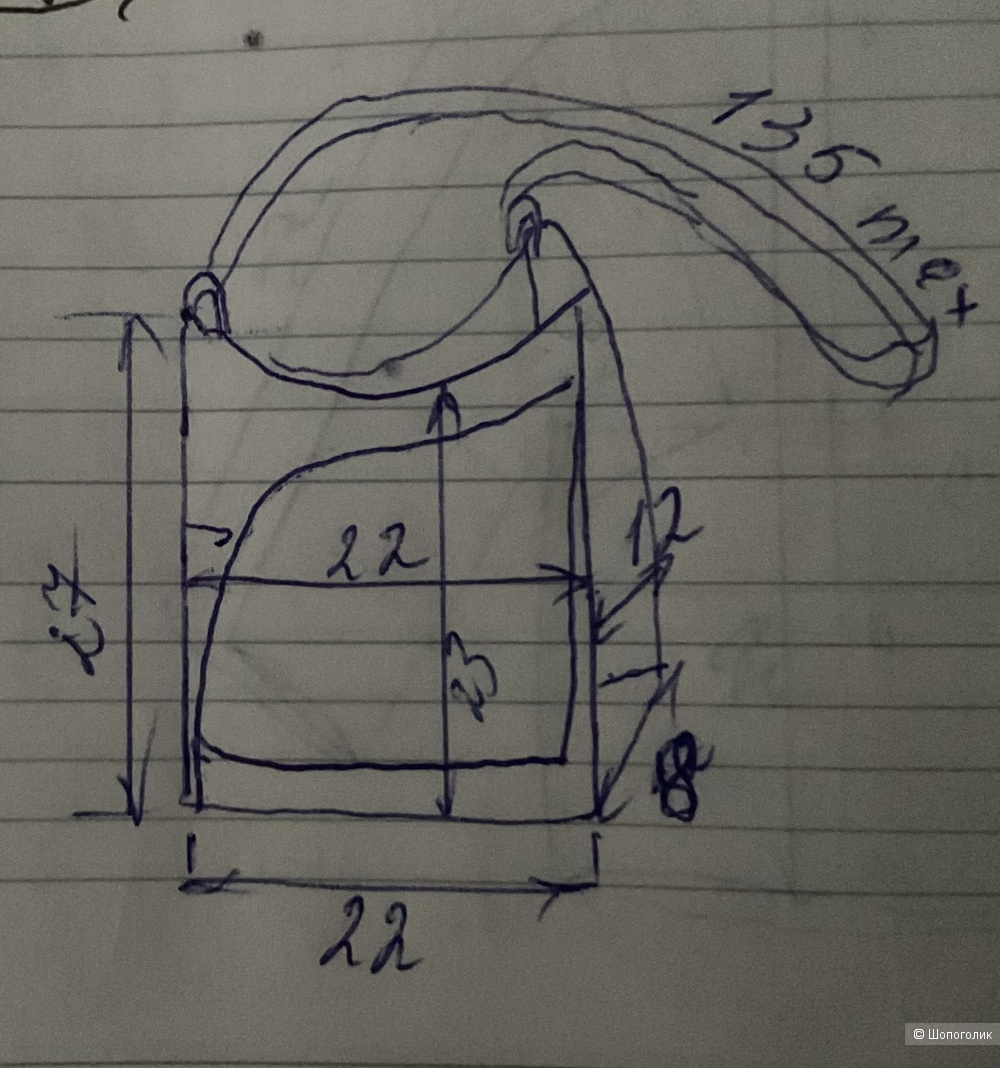 135 max
12
22
27
23
8
22
© Шопоголик